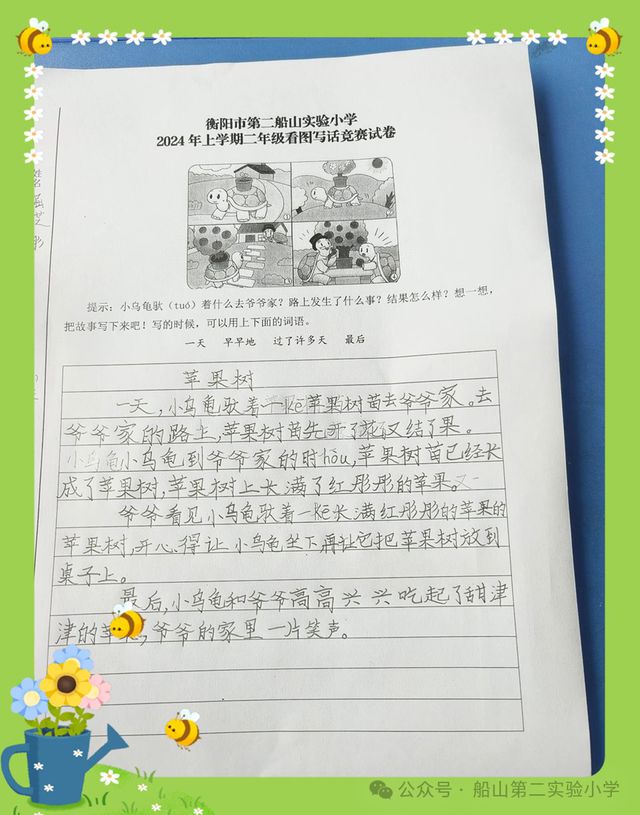 衡阳市第二船山实验小学
2024年上学期二年级看图写话竞赛试卷
提示：小乌龟驮（tuó）着什么去爷爷家？路上发生了什么事？结果怎么样？想一想，
把故事写下来吧！写的时候，可以用上下面的词语。
一天 早早地 过了许多天 最后
苹果树
一天，小乌龟驮着一kē苹果树苗去爷爷家。去
爷爷家的路上，苹果树苗先开了花又结了果。
小乌龟到爷爷家的时hòu，苹果树苗已经长
成了苹果树，苹果树上长满了红彤彤的苹果。
爷爷看见小乌龟驮着一kē长满红彤彤的苹果的
苹果树，开心得让小乌龟坐下再让它把苹果树放到
桌子上。
最后，小乌龟和爷爷高高兴兴吃起了甜津
津的苹果，爷爷的家里一片笑声。
公众号·船山第二实验小学